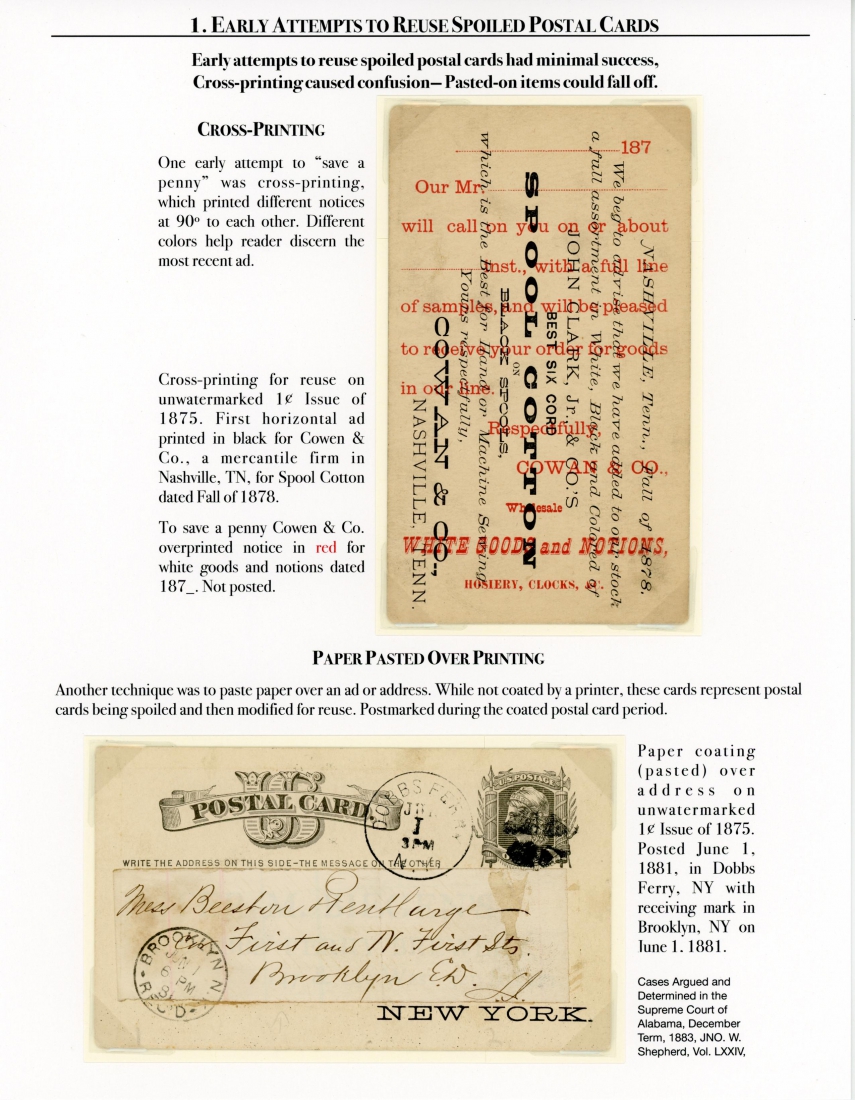 1. EARLY ATTEMPTS TO REUSE SPOILED POSTAL CARDS
Early attempts to reuse spoiled postal cards had minimal success,
Cross-printing caused confusion—Pasted-on items could fall off.
CROSS-PRINTING
One early attempt to “save a
penny” was cross-printing,
which printed different notices
at 90º to each other. Different
colors help reader discern the
most recent ad.
Cross-printing for reuse on
unwatermarked 1¢ Issue of
1875. First horizontal ad
printed in black for Cowen &
Co., a mercantile firm in
Nashville, TN, for Spool Cotton
dated Fall of 1878.
To save a penny Cowen & Co.
overprinted notice in red for
white goods and notions dated
187_. Not posted.
187
Our Mr.
will call on you on or about
inst., with a full line
of samples, and will be pleased
to receive your order for goods
in our line.
Respectfully,
COWAN & CO.,
Wholesale
WHITE GOODS and NOTIONS,
HOSIERY, CLOCKS, &c.
NASHVILLE, Tenn., Fall of 1878.
We beg to advise that we have added to our stock
a full assortment in White, Black and Colored of
JOHN CLARK, Jr., & CO.'S
BEST SIX CORD
SPOOL COTTON
ON
BLACK SPOOLS,
which is the Best for Hand or Machine Sewing.
Yours respectfully,
COWAN & CO.,
NASHVILLE, TENN.
PAPER PASTED OVER PRINTING
Another technique was to paste paper over an ad or address. While not coated by a printer, these cards represent postal
cards being spoiled and then modified for reuse. Postmarked during the coated postal card period.
US
POSTAL CARD
WRITE THE ADDRESS ON THIS SIDE-THE MESSAGE ON THE OTHER
DOBBS FERRY
1
3PM
N.Y.
U.S. POSTAGE
Miss Beeston
First and N. First Sts.
Brooklyn E.D.
NEW YORK.
BROOKLYN N.
JUN 1
6 PM
81
REC'D
Paper coating
(pasted) over
address on
unwatermarked
1¢ Issue of 1875.
Posted June 1,
1881, in Dobbs
Ferry, NY with
receiving mark in
Brooklyn, NY on
June 1. 1881.
Cases Argued and
Determined in the
Supreme Court of
Alabama, December
Term, 1883, JNO. W.
Shepherd, Vol. LXXIV,